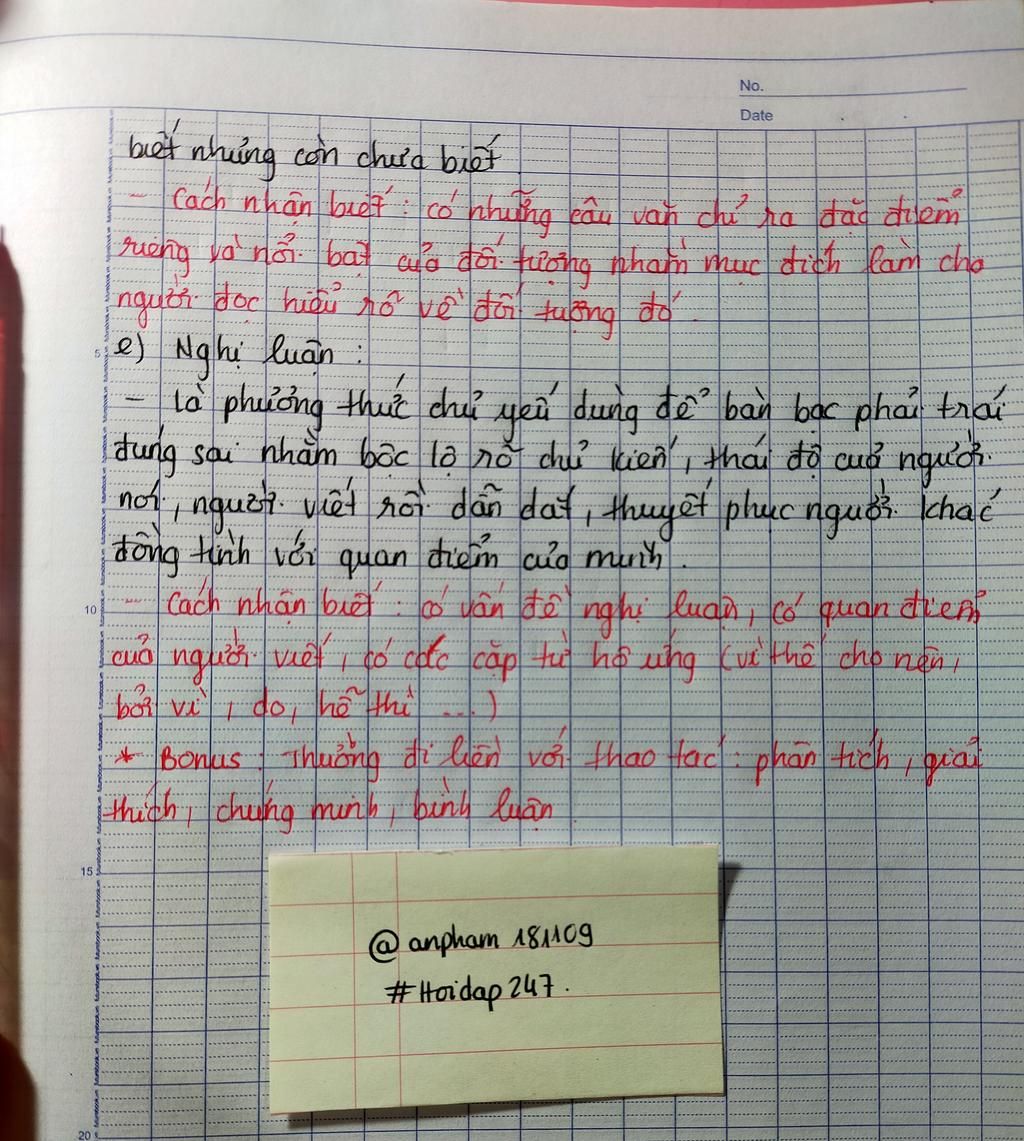 No.
Date
biết nhưng còn chưa biết
- Cách nhận biết : có những câu văn chỉ ra đặc điểm
riêng và nổi bật của đối tượng nhằm mục đích làm cho
người đọc hiểu rõ về đối tượng đó.
5
e) Nghị luận :
- Là phương thức chủ yếu dùng để bàn bạc phải trái
đúng sai nhằm bộc lộ rõ chủ kiến, thái độ của người
nói, người viết rồi dẫn dắt, thuyết phục người khác
đồng tình với quan điểm của mình.
10
- Cách nhận biết : có vấn đề nghị luận, có quan điểm
của người viết, có các cặp từ hô ứng (vì thế cho nên,
bởi vì, do, hễ thì ....)
* Bonus : Thường đi liền với thao tác : phân tích, giải
thích, chứng minh, bình luận
15
@anpham 181109
#Hoidap247.
20